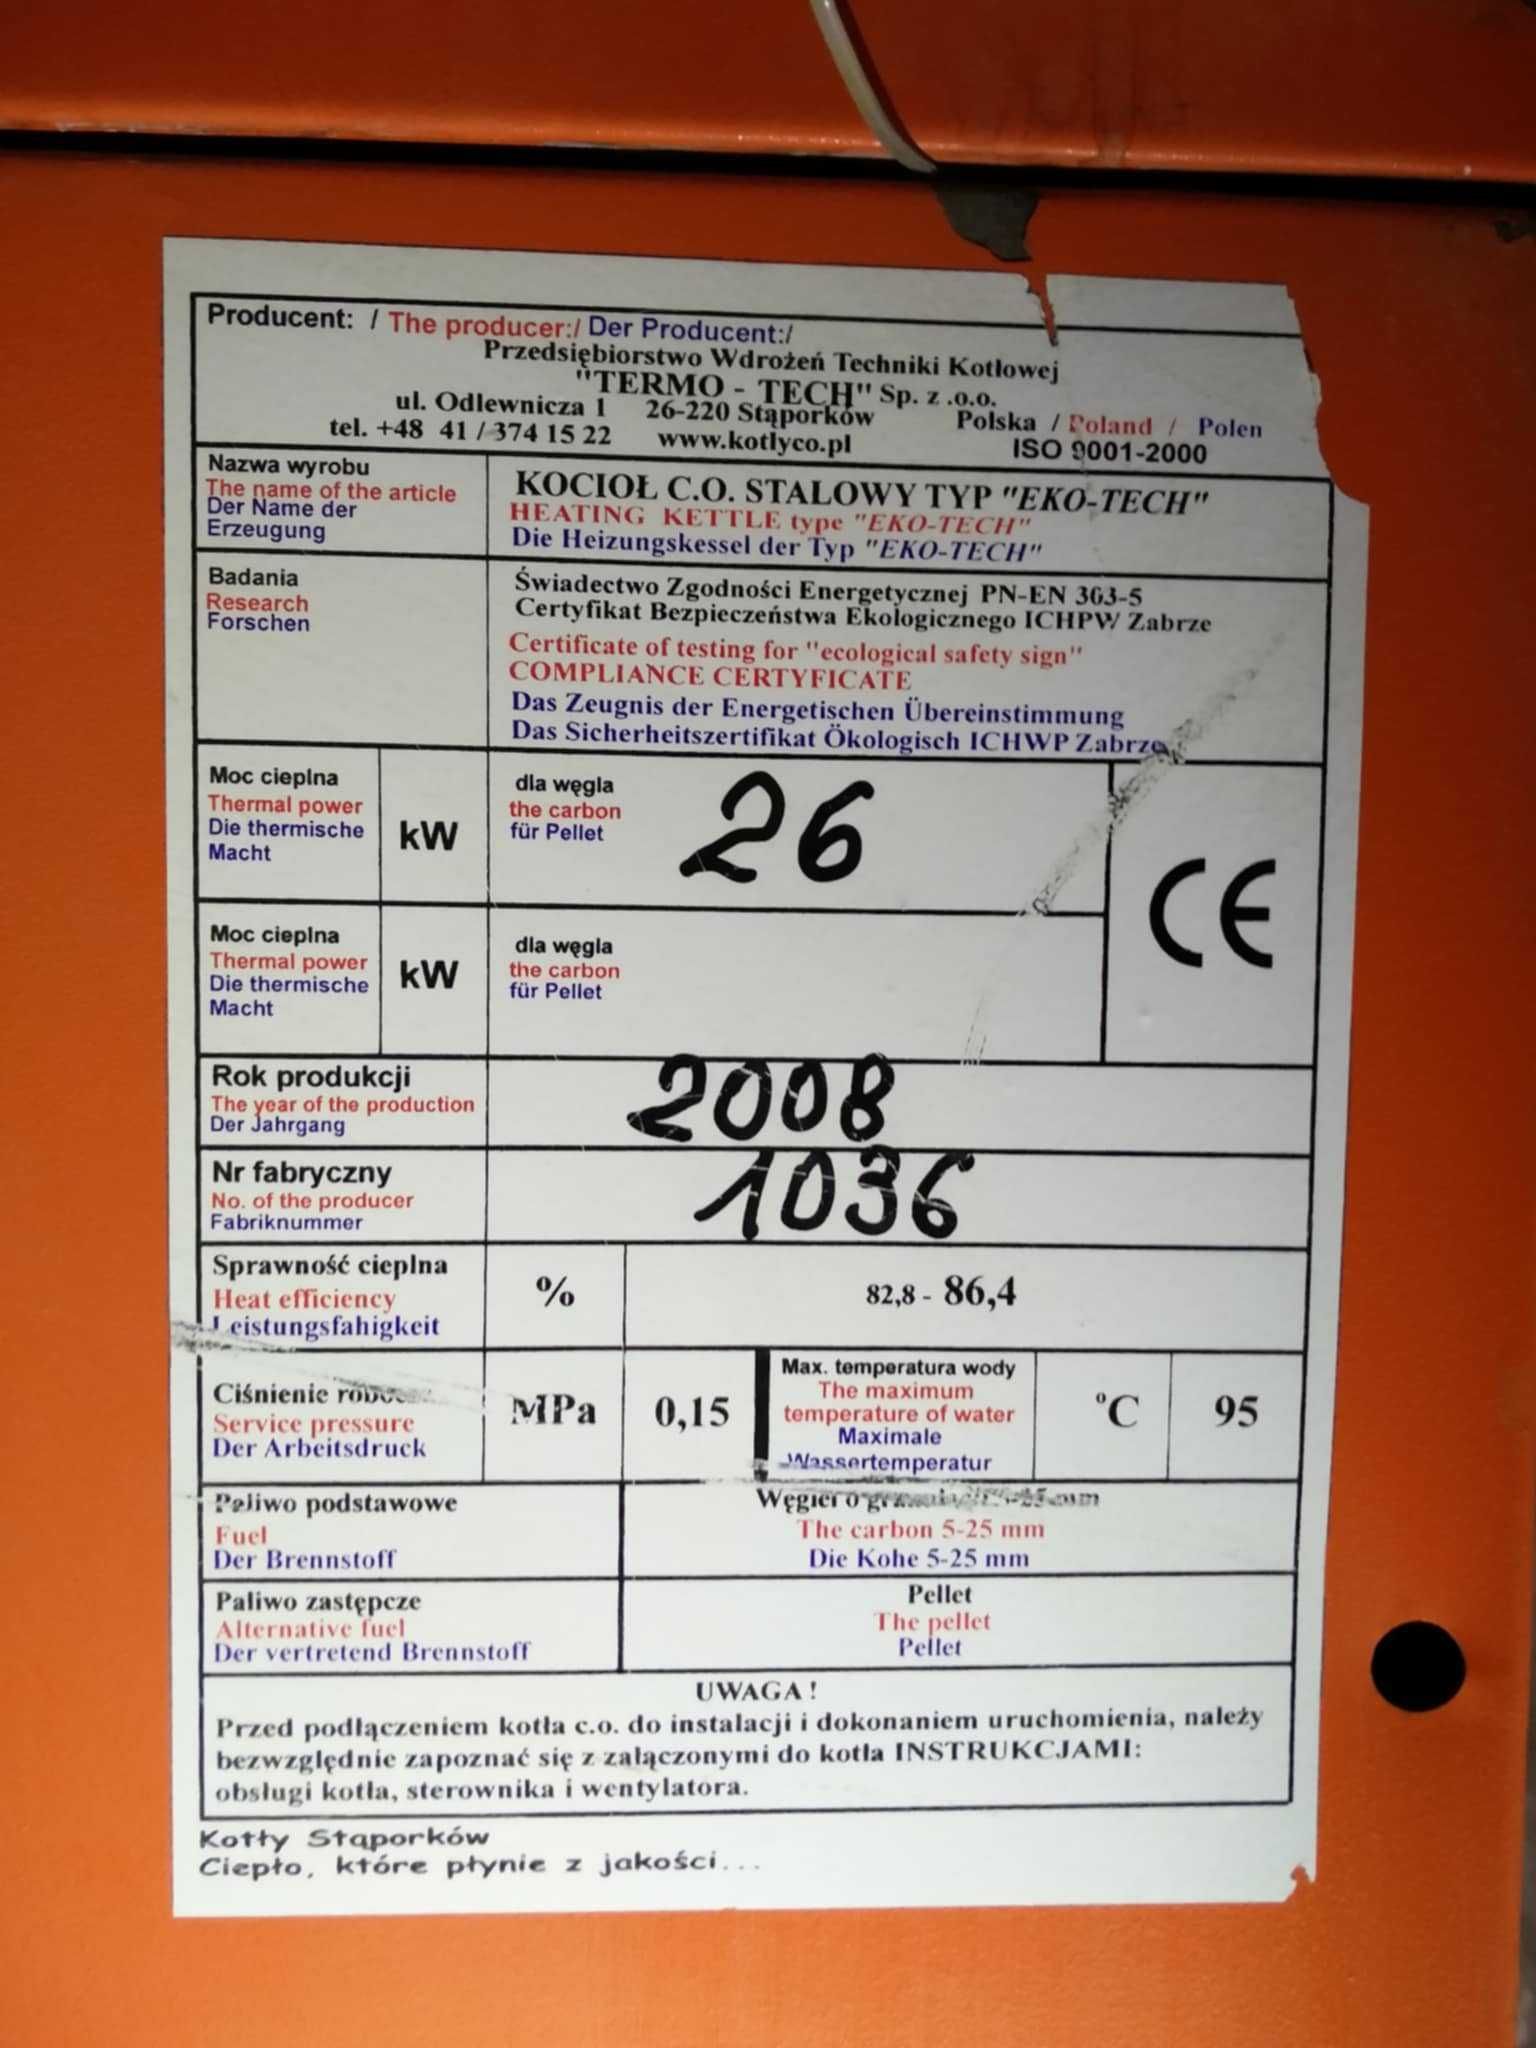 Producent: / The producer:/ Der Producent:/
Przedsiębiorstwo Wdrożeń Techniki Kotłowej
"TERMO - TECH" Sp. z .o.o.
ul. Odlewnicza 1 26-220 Stąporków Polska / Poland / Polen
tel. +48 41 / 374 15 22 www.kotlyco.pl ISO 9001-2000
Nazwa wyrobu
The name of the article
Der Name der
Erzeugung
KOCIOŁ C.O. STALOWY TYP "EKO-TECH"
HEATING KETTLE type "EKO-TECH"
Die Heizungskessel der Typ "EKO-TECH"
Badania
Research
Forschen
Świadectwo Zgodności Energetycznej PN-EN 303-5
Certyfikat Bezpieczeństwa Ekologicznego ICHPW Zabrze
Certificate of testing for "ecological safety sign"
COMPLIANCE CERTYFICATE
Das Zeugnis der Energetischen Übereinstimmung
Das Sicherheitszertifikat Ökologisch ICHWP Zabrze
Moc cieplna
Thermal power
Die thermische
Macht
kW
dla węgla
the carbon
für Pellet
26
CE
Moc cieplna
Thermal power
Die thermische
Macht
kW
dla węgla
the carbon
für Pellet
Rok produkcji
The year of the production
Der Jahrgang
2008
Nr fabryczny
No. of the producer
Fabriknummer
1036
Sprawność cieplna
Heat efficiency
Leistungsfahigkeit
%
82,8 - 86,4
Ciśnienie
Service pressure
Der Arbeitsdruck
MPa
0,15
Max. temperatura wody
The maximum
temperature of water
Maximale
Wassertemperatur
°C
95
Paliwo podstawowe
Fuel
Der Brennstoff
Węgiel o 5-25 mm
The carbon 5-25 mm
Die Kohe 5-25 mm
Paliwo zastępcze
Alternative fuel
Der vertretend Brennstoff
Pellet
The pellet
Pellet
UWAGA !
Przed podłączeniem kotła c.o. do instalacji i dokonaniem uruchomienia, należy
bezwzględnie zapoznać się z załączonymi do kotła INSTRUKCJAMI:
obsługi kotła, sterownika i wentylatora.
Kotły Stąporków
Ciepło, które płynie z jakości...